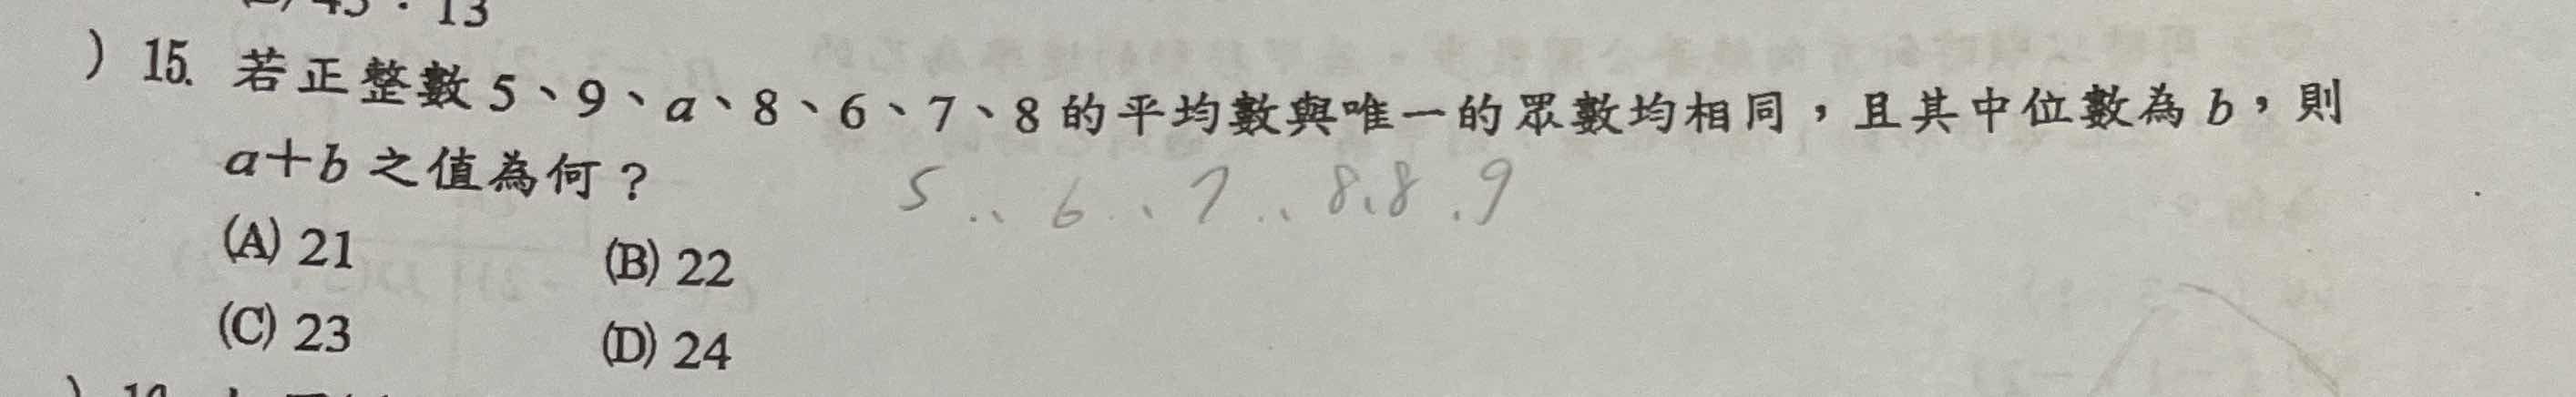 13
) 15. 若正整數 5、9、a、8、6、7、8 的平均數與唯一的眾數均相同，且其中位數為 b，則
a＋b 之值為何？
5、6、7、8、8、9
(A) 21 (B) 22
(C) 23 (D) 24